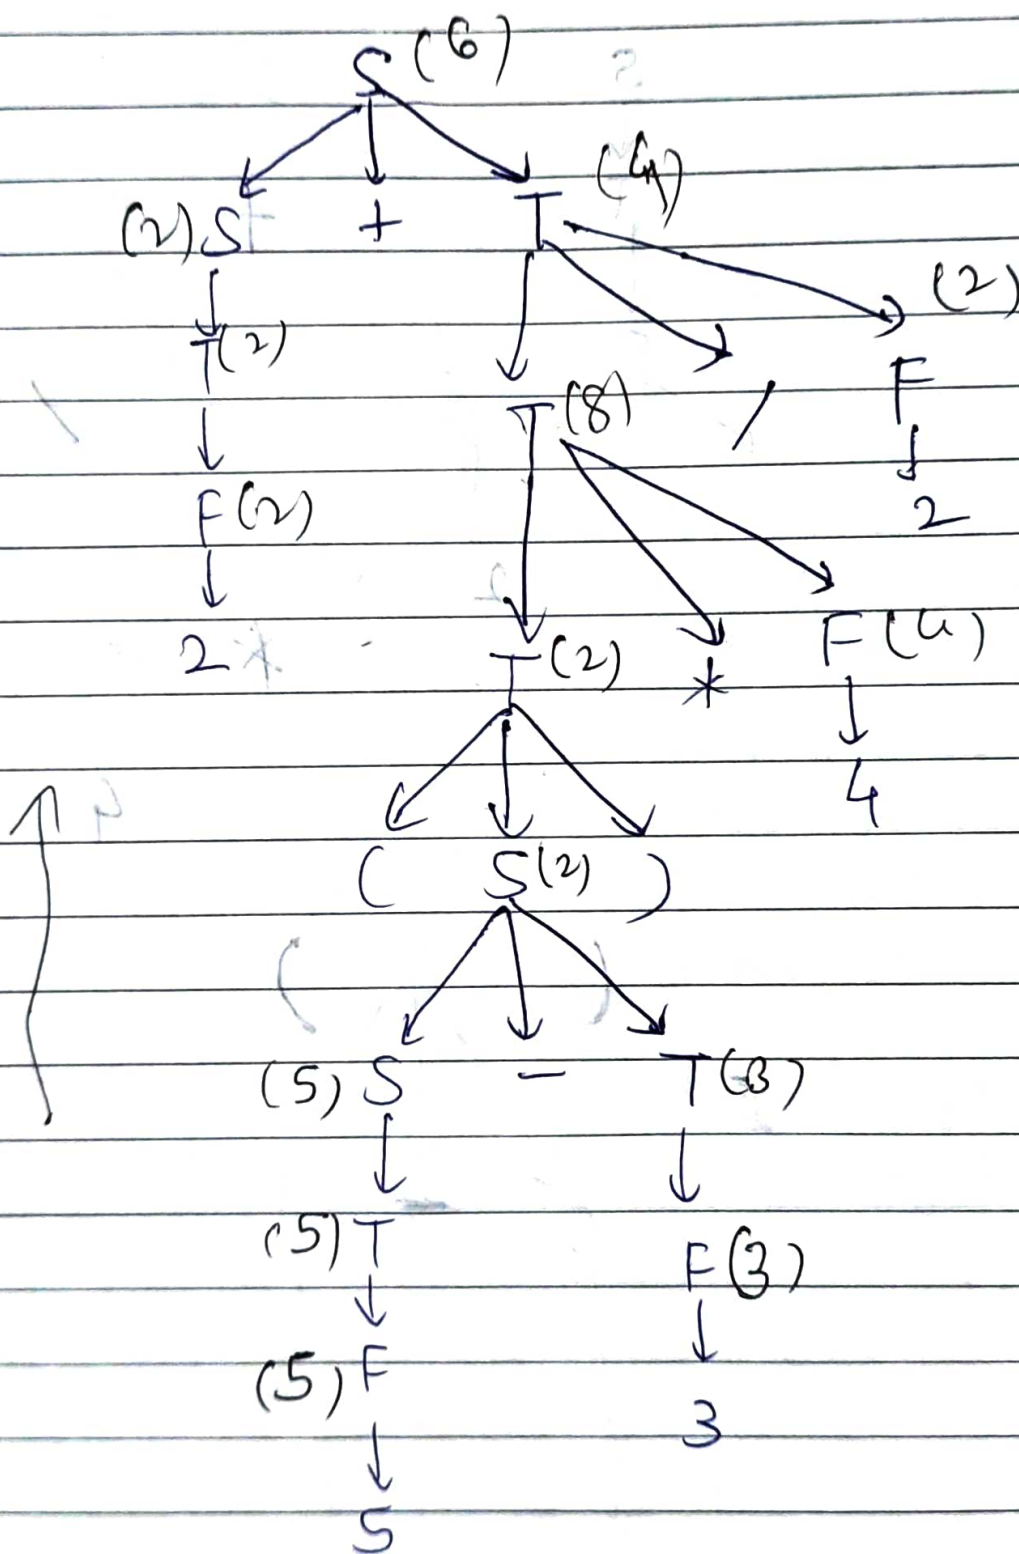 S (6)
(2) S + T (4)
T (2) (2)
T (8) / F
F (2) 2
2 T (2) * F (4)
4
( S (2) )
(5) S - T (3)
(5) T F (3)
(5) F 3
5